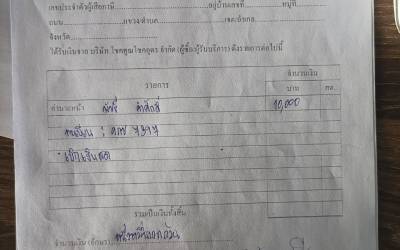 เลขประจำตัวผู้เสียภาษี ..................อยู่บ้านเลขที่............หมู่ที่
ถนน..................แขวง/ตำบล..................เขต/อำเภอ
จังหวัด
ได้รับเงินจาก บริษัท โชคคูณโชคอุดร จำกัด (ผู้ซื้อ/ผู้รับบริการ) ดังรายการต่อไปนี้
รายการ จำนวนเงิน
บาท สต.
ค่านายหน้า 10,000
ทะเบียน : 7397
เบิกเงินสด
รวมเป็นเงินทั้งสิ้น
จำนวนเงิน (อักษร)